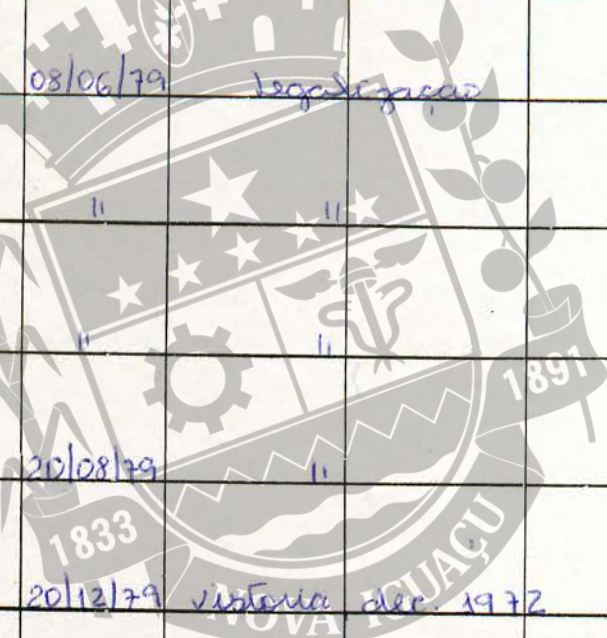 08/06/79 legalização
" "
" "
20/08/79 "
20/12/79 vistoria dec. 1972
1891
1833
NOVA IGUAÇU